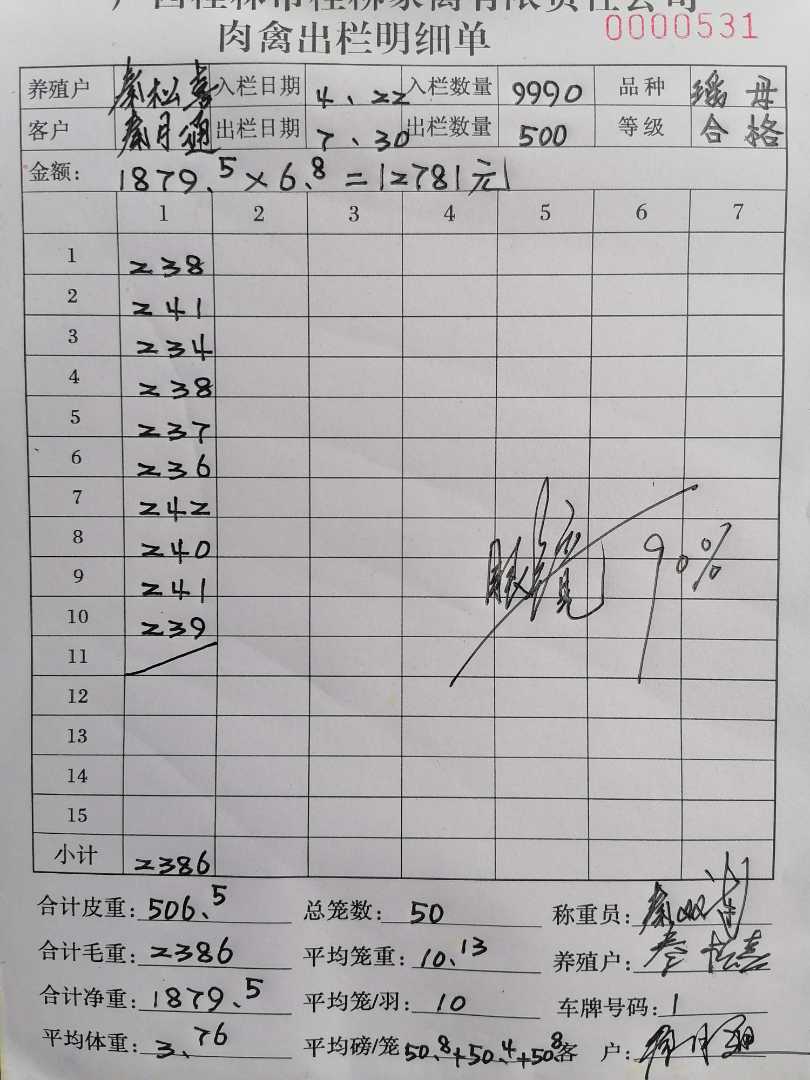 广西桂林市桂柳家禽有限责任公司
肉禽出栏明细单 0000531
养殖户 秦松喜 入栏日期 4、22 入栏数量 9990 品种 瑶母
客户 秦月通 出栏日期 7、30 出栏数量 500 等级 合格
金额: 1879.5×6.8=12781元
1 2 3 4 5 6 7
1 238
2 241
3 234
4 238
5 237
6 236
7 242
8 240
9 241
10 239
90%
11
12
13
14
15
小计 2386
合计皮重: 506.5 总笼数: 50 称重员:
合计毛重: 2386 平均笼重: 10.13 养殖户: 秦松喜
合计净重: 1879.5 平均笼/羽: 10 车牌号码: 1
平均体重: 3.76 平均磅/笼 50.8+50.4+50.8 客 户: